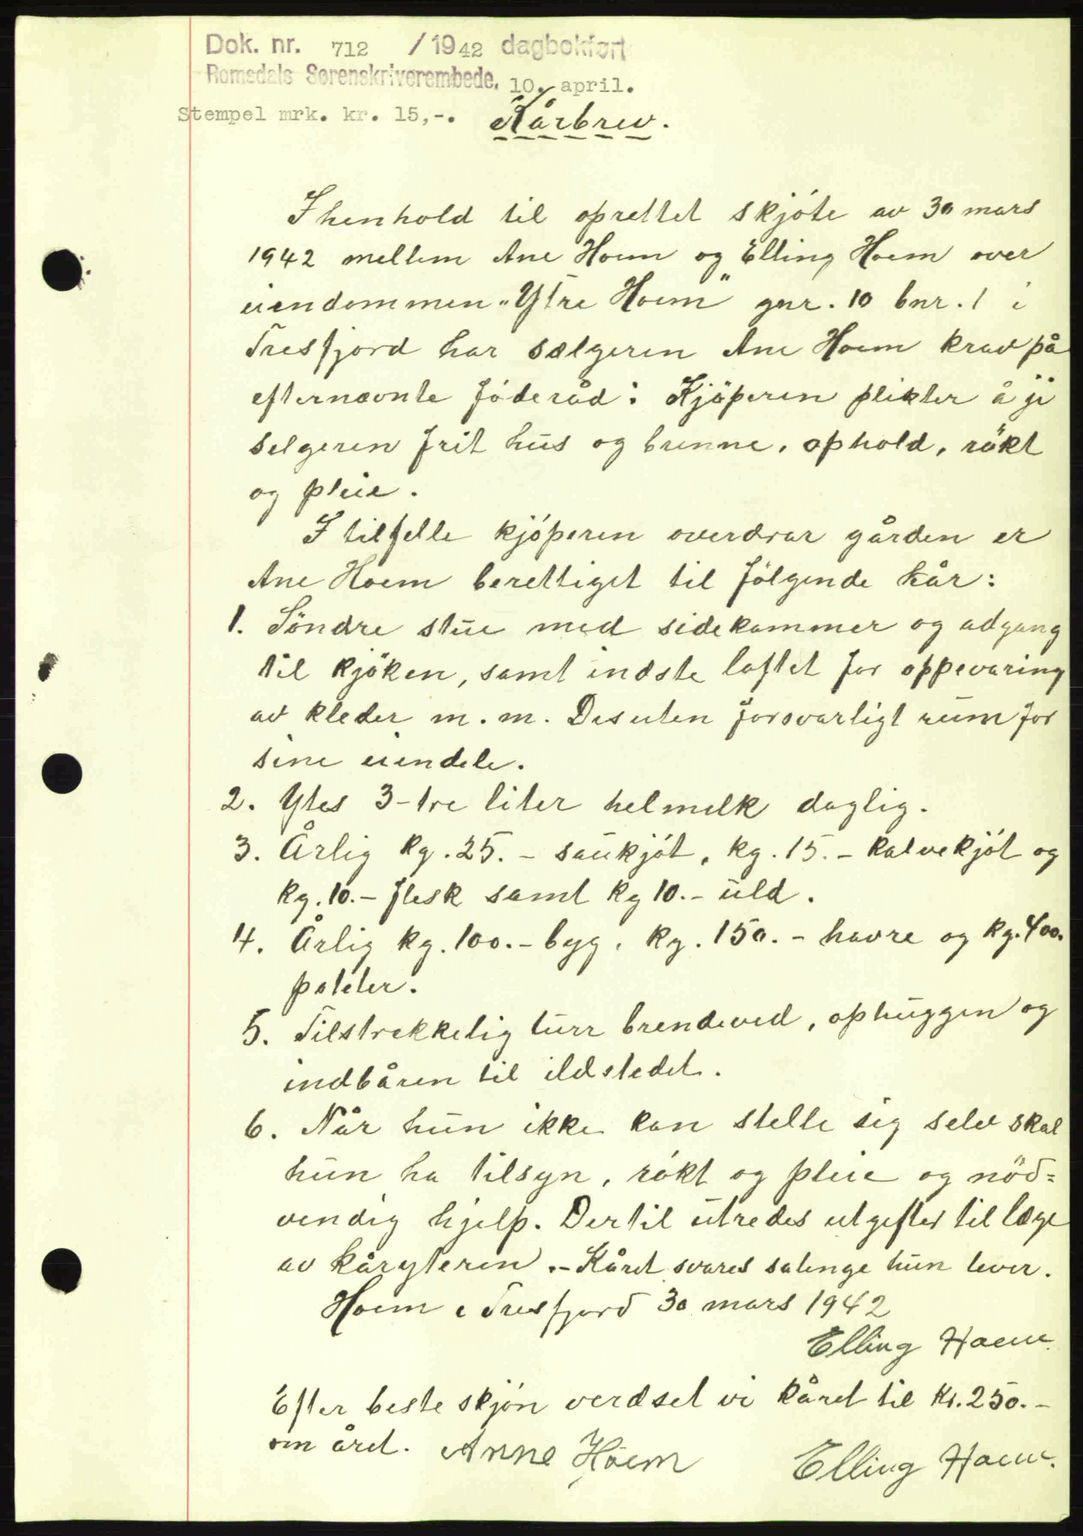 Dok. nr. 712 /1942 dagbokført
Romsdals Sørenskriverembede. 10. april.
Stempel mrk. kr. 15,-.
Kårbrev.
I henhold til oprettet skjöte av 30 mars
1942 mellem Ane Hoem og Elling Hoem over
eiendommen „Ytre Hoem" gnr. 10 bnr. 1 i
Tresfjord har sælgeren Ane Hoem krav på
efternævnte föderåd: Kjöperen plikter å ji
selgeren frit hus og brenne, ophold, rökt
og pleie.
I tilfelle kjöperen overdrar gården er
Ane Hoem berettiget til fölgende kår:
1. Söndre stue med sidekammer og adgang
til kjöken, samt indste loftet for oppevaring
av kleder m.m. Desuten forsvarligt rum for
sine eiendele.
2. Ytes 3-tre liter helmelk daglig.
3. Årlig kg. 25.- saukjöt, kg. 15.- kalvekjöt og
kg. 10.- flesk samt kg 10.- uld.
4. Årlig kg. 100.- byg, kg. 150.- havre og kg. 400.
poteter.
5. Tilstrekkelig turr brendeved, ophuggen og
indbåren til ildstedet.
6. Når hun ikke kan stelle sig selv skal
hun ha tilsyn, rökt og pleie og nöd=
vendig hjelp. Dertil utredes utgifter til læge
av kåryteren.- Kåret svares salenge hun lever.
Hoem i Tresfjord 30 mars 1942
Elling Hoem.
Efter beste skjön verdset vi kåret til Kr. 250.-
om året. Anne Hoem Elling Hoem.